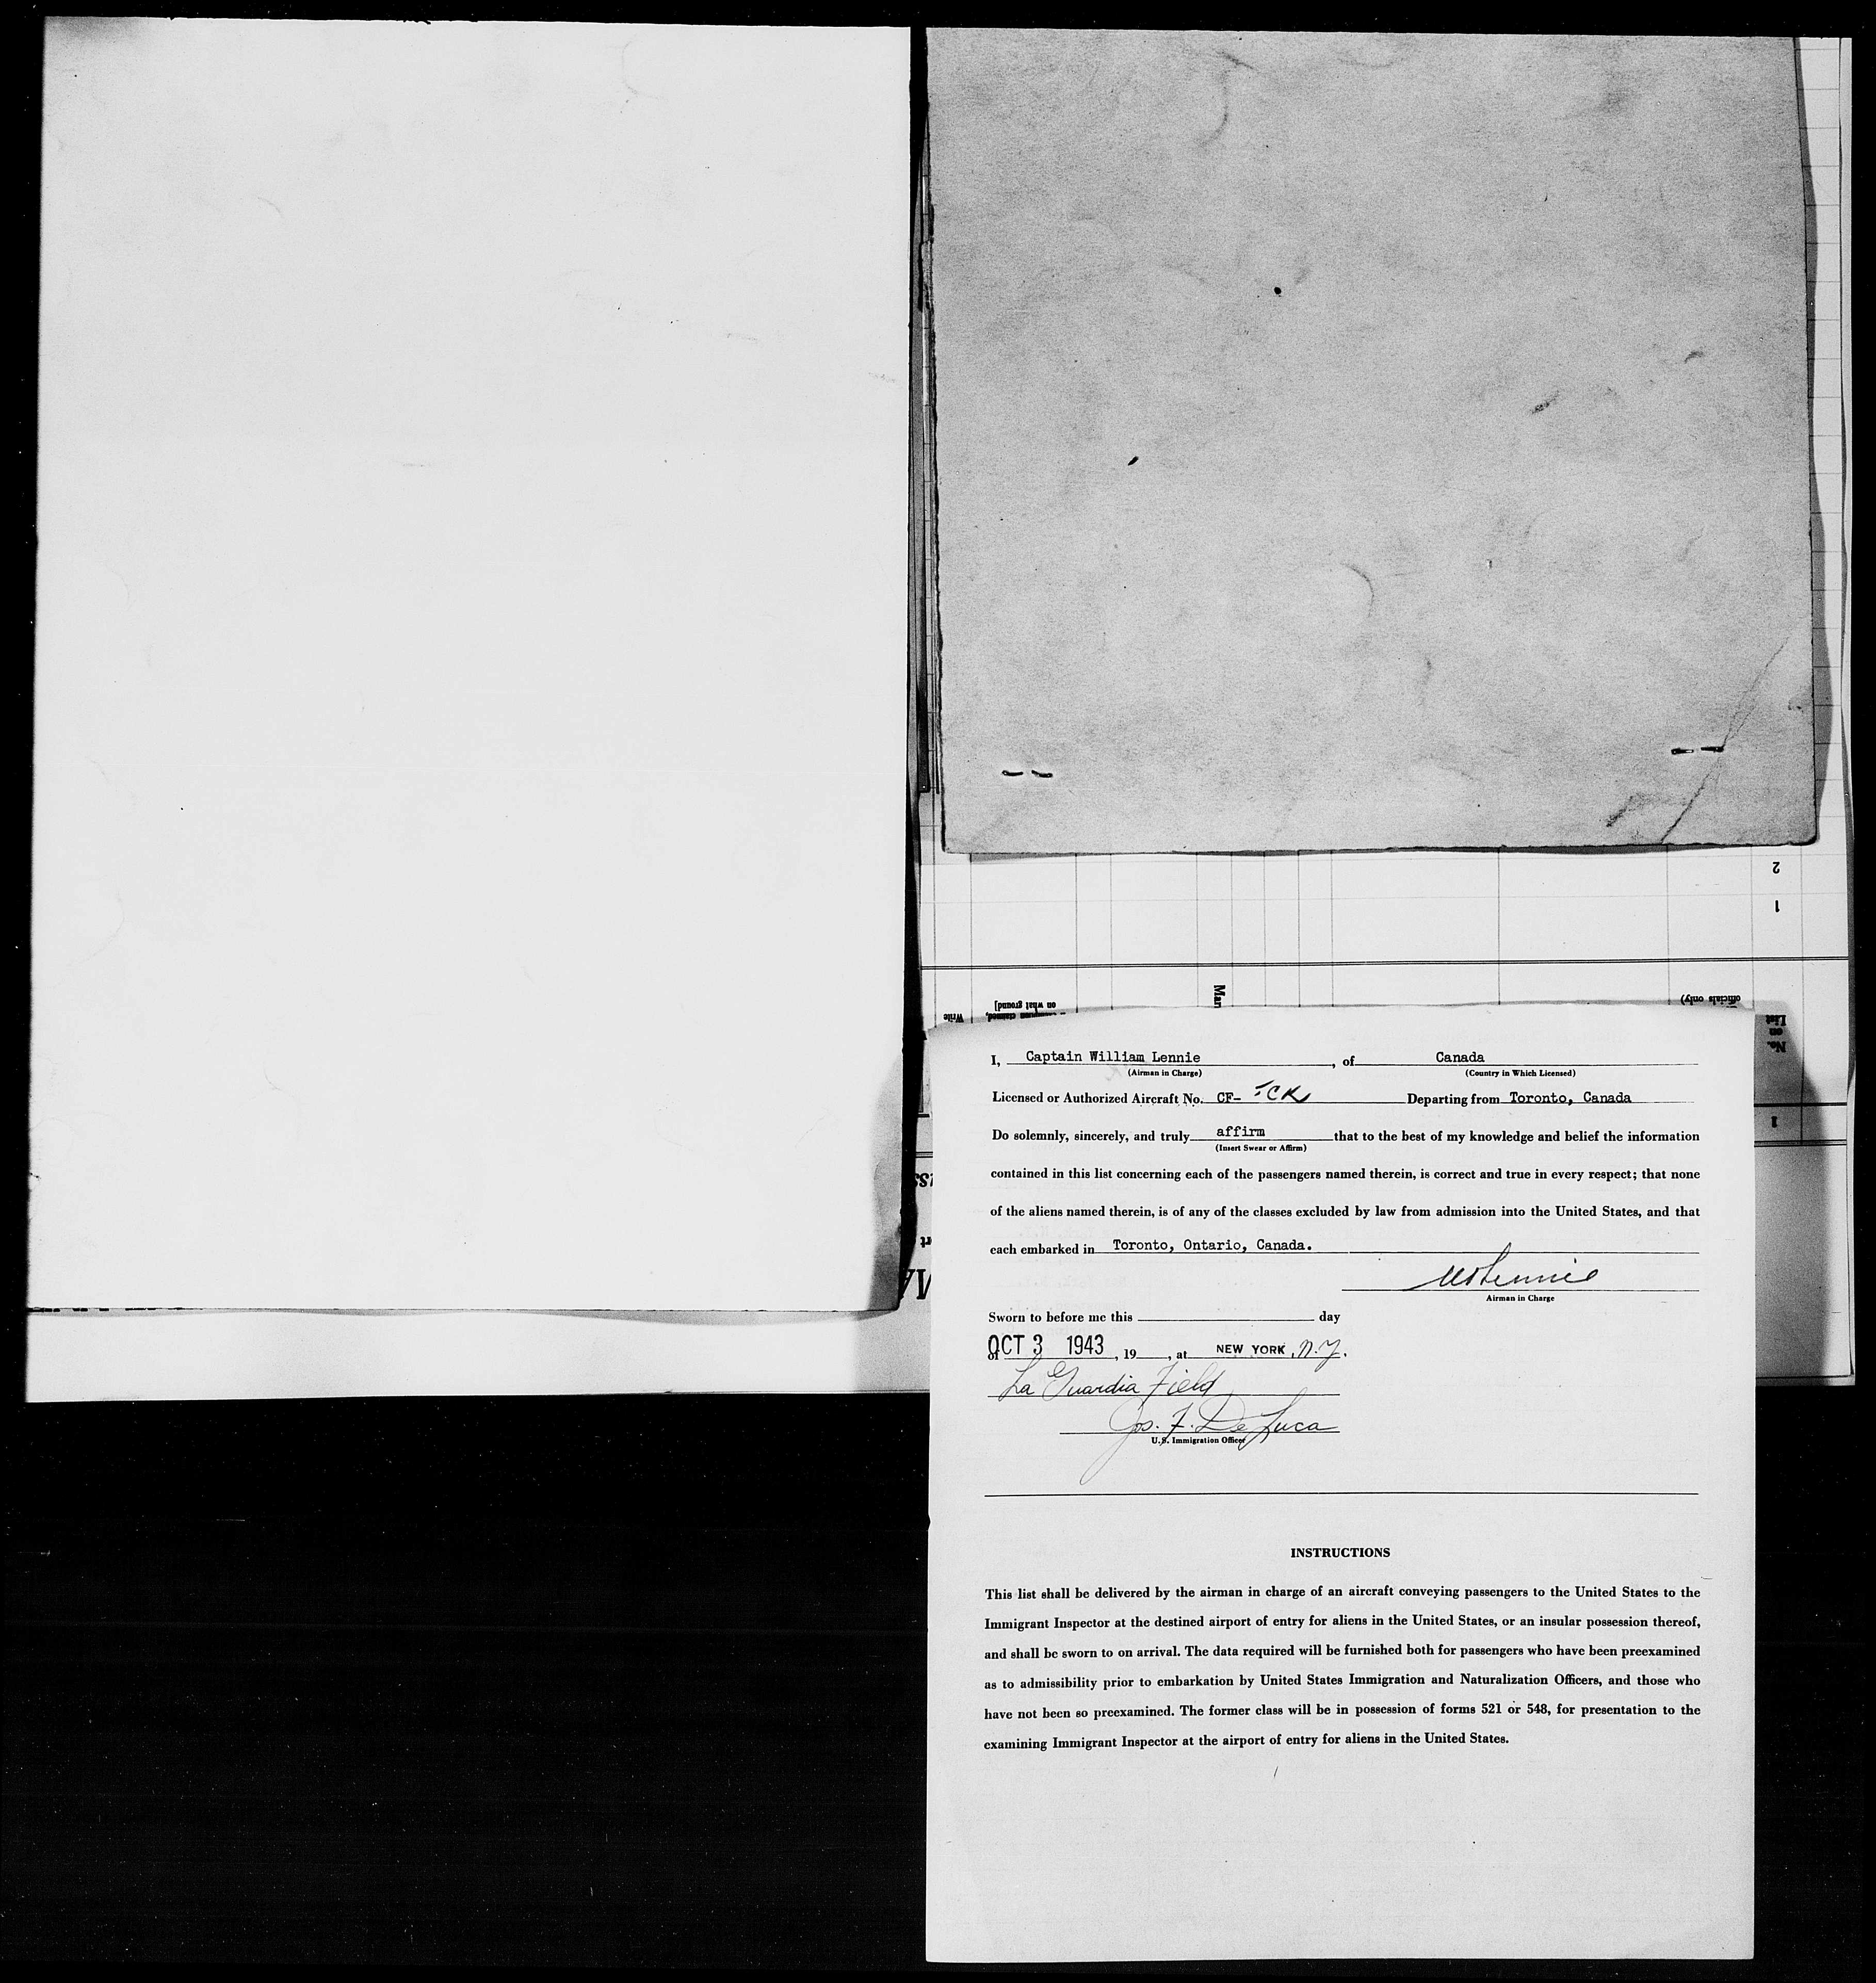 2
1
on what ground]
Man
officials only)
Write
No.
on
List
1
I, Captain William Lennie, of Canada
(Airman in Charge) (Country in Which Licensed)
Licensed or Authorized Aircraft No. CF- Departing from Toronto, Canada
Do solemnly, sincerely, and truly affirm that to the best of my knowledge and belief the information
(Insert Swear or Affirm)
contained in this list concerning each of the passengers named therein, is correct and true in every respect; that none
of the aliens named therein, is of any of the classes excluded by law from admission into the United States, and that
each embarked in Toronto, Ontario, Canada.
WLennie
Airman in Charge
Sworn to before me this day
of OCT 3 1943, 19, at NEW YORK, N.Y.
La Guardia Field
Jos. F. De Luca
U.S. Immigration Officer
INSTRUCTIONS
This list shall be delivered by the airman in charge of an aircraft conveying passengers to the United States to the
Immigrant Inspector at the destined airport of entry for aliens in the United States, or an insular possession thereof,
and shall be sworn to on arrival. The data required will be furnished both for passengers who have been preexamined
as to admissibility prior to embarkation by United States Immigration and Naturalization Officers, and those who
have not been so preexamined. The former class will be in possession of forms 521 or 548, for presentation to the
examining Immigrant Inspector at the airport of entry for aliens in the United States.